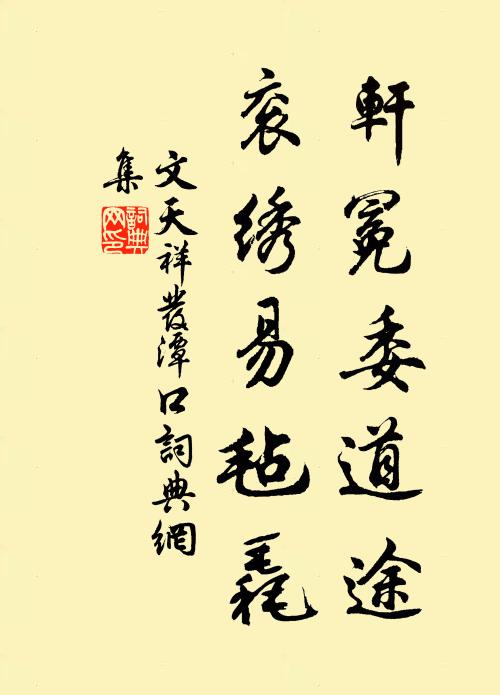 軒冕委道途
衮绣易毡毳
文天祥發潭口詞典網
集
詞典
网印